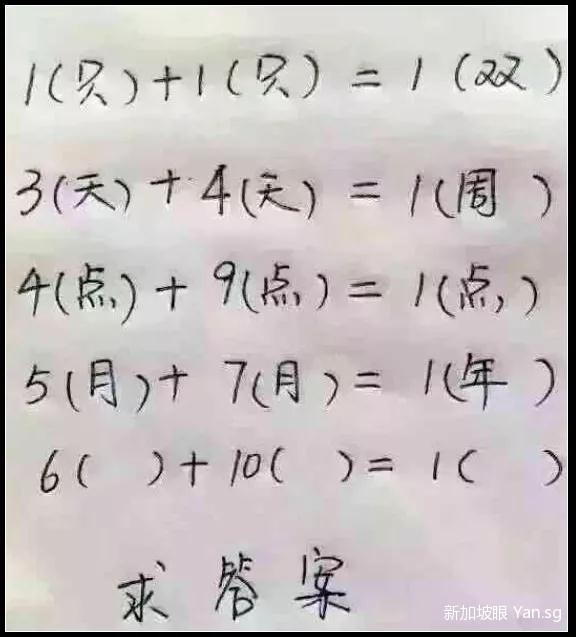 1(只)+1(只)=1(双)
3(天)+4(天)=1(周)
4(点)+9(点)=1(点)
5(月)+7(月)=1(年)
6( )+10( )=1( )
求答案
新加坡眼 Yan.sg